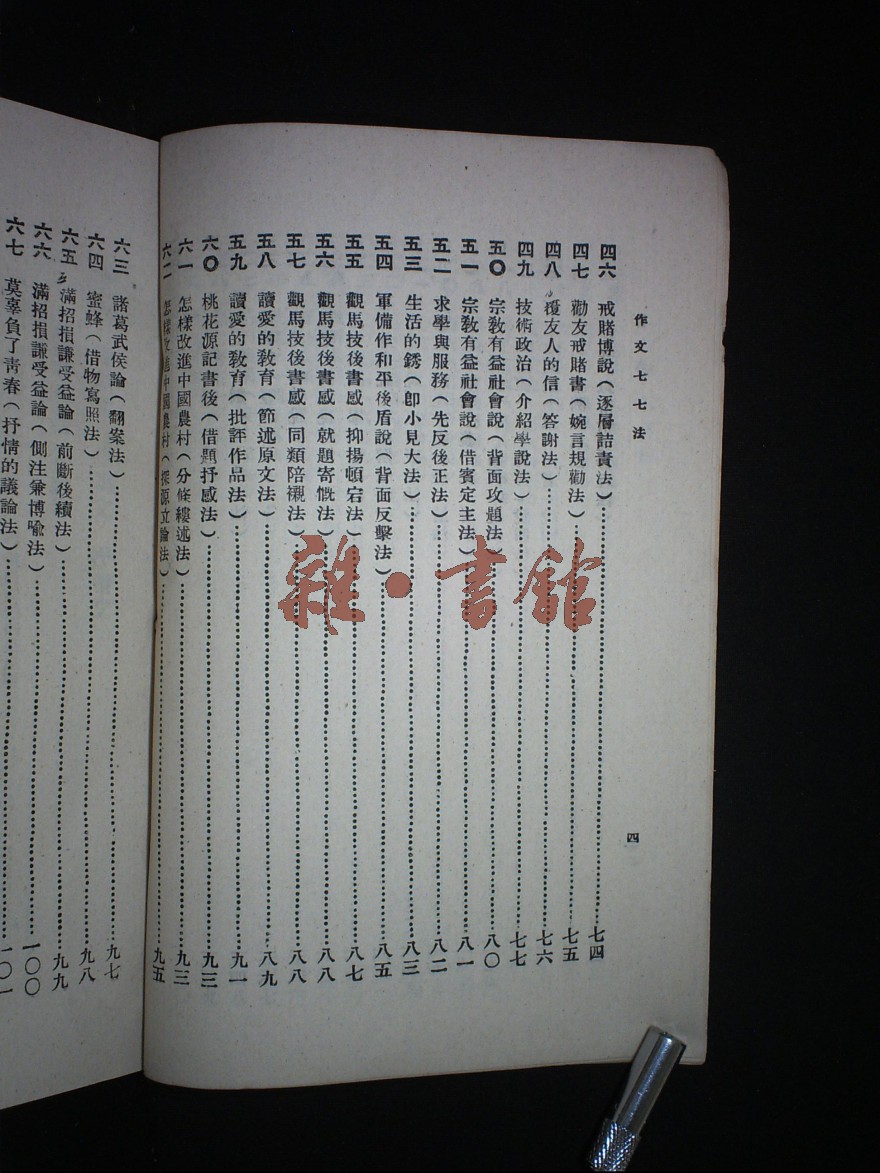 作文七七法
四六 戒賭博說(逐層詰責法)……七四
四七 勸友戒賭書(婉言規勸法)……七五
四八 覆友人的信(答謝法)……七六
四九 技術政治(介紹學說法)……七七
五〇 宗敎有益社會說(背面攻題法)……八〇
五一 宗敎有益社會說(借賓定主法)……八一
五二 求學與服務(先反後正法)……八二
五三 生活的銹(卽小見大法)……八三
五四 軍備作和平後盾說(背面反擊法)……八五
五五 觀馬技後書感(抑揚頓宕法)……八七
五六 觀馬技後書感(就題寄慨法)……八八
五七 觀馬技後書感(同類陪襯法)……八八
五八 讀愛的敎育(節述原文法)……八九
五九 讀愛的敎育(批評作品法)……九一
六〇 桃花源記書後(借題抒感法)……九三
六一 怎樣改進中國農村(分條縷述法)……九三
六二 怎樣改進中國農村(探源立論法)……九五
四
六三 諸葛武侯論(翻案法)……九七
六四 蜜蜂(借物寫照法)……九八
六五 滿招損謙受益論(前斷後續法)……九九
六六 滿招損謙受益論(側注兼博喩法)……一〇〇
六七 莫辜負了靑春(抒情的議論法)……一〇一
雜·書館